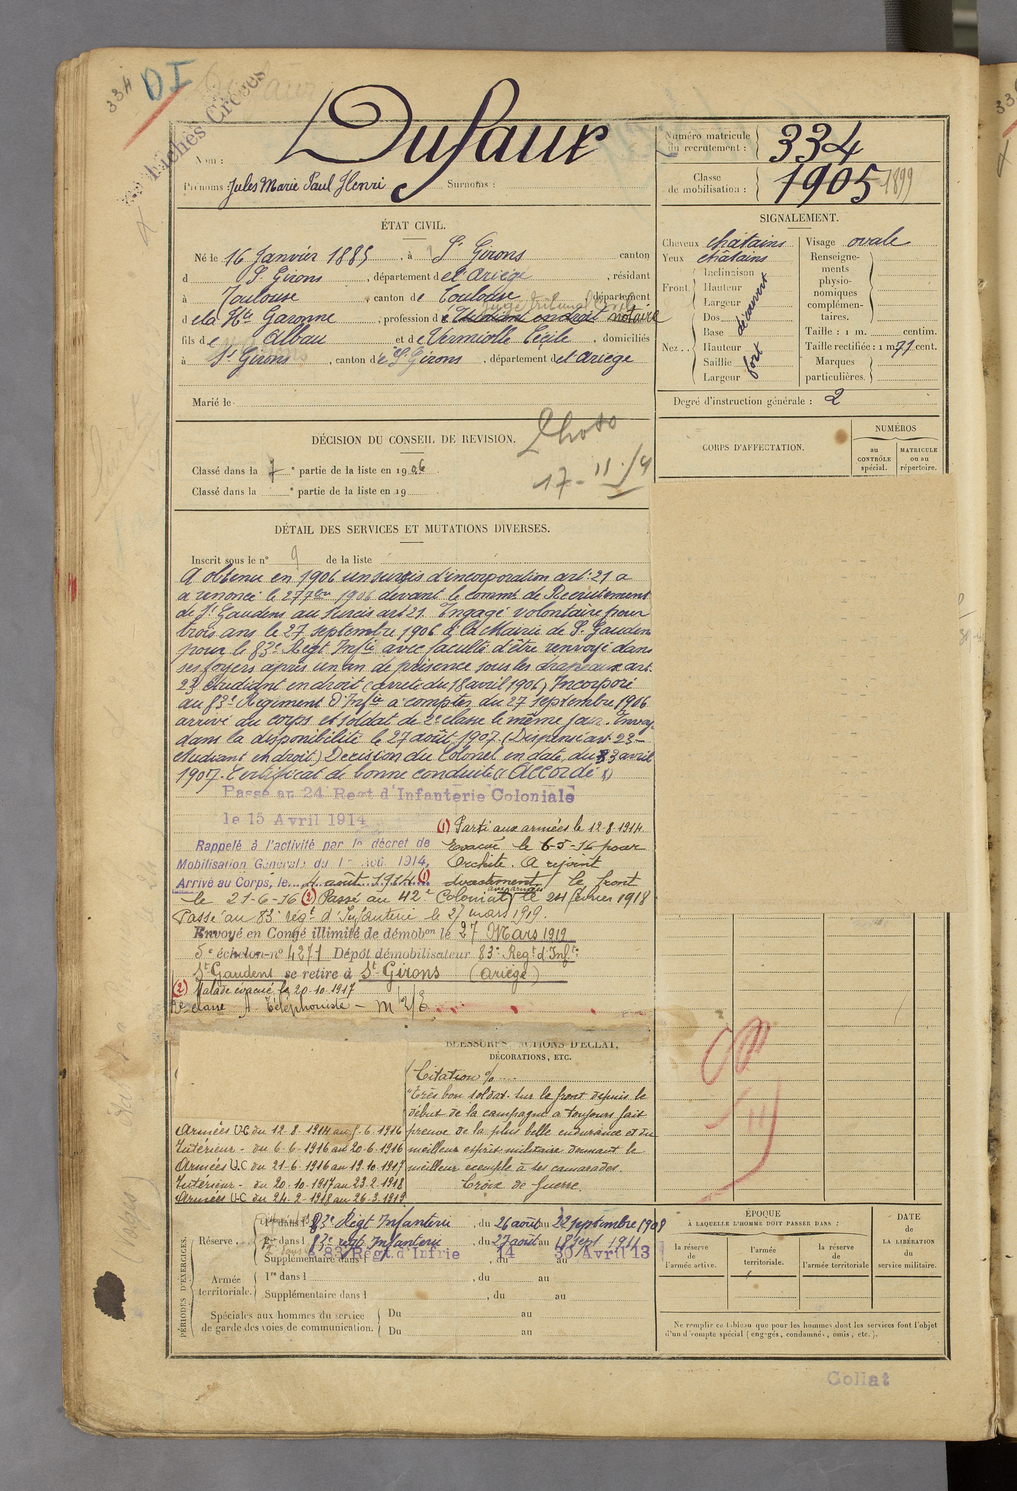 334
DI
Fiches Créées
Nom : Dufaur
Prénoms : Jules Marie Paul Henri Surnoms :
Numéro matricule du recrutement : 334
Classe de mobilisation : 1905 1899
ÉTAT CIVIL.
Né le 16 Janvier 1885, à St Girons canton
d St Girons, département de l'Ariège, résidant
à Toulouse, canton de Toulouse département
Juge tribunal civil
de la Hte Garonne, profession d'Etudiant en droit notaire
fils de Alban et de Vermiolle Cécile, domiciliés
à St Girons, canton de St Girons, département de l'Ariège
Marié le
SIGNALEMENT.
Cheveux châtains
Yeux châtains
Front Inclinaison Hauteur Largeur découvert
Nez Dos Base Hauteur Saillie Largeur fort
Visage ovale
Renseignements physionomiques complémentaires.
Taille : 1 m. centim.
Taille rectifiée : 1 m. 71 cent.
Marques particulières.
Degré d'instruction générale : 2
DÉCISION DU CONSEIL DE REVISION.
Photo
17-11-14
Classé dans la 1e partie de la liste en 1906
Classé dans la e partie de la liste en 19
CORPS D'AFFECTATION.
NUMÉROS
au CONTRÔLE spécial.
MATRICULE ou au répertoire.
DÉTAIL DES SERVICES ET MUTATIONS DIVERSES.
Inscrit sous le n° 9 de la liste
A obtenu en 1906 un sursis d'incorporation art. 21 a
a renoncé le 27 7bre 1906 devant le commt de Recrutement
de St Gaudens au sursis art 21. Engagé volontaire pour
trois ans le 27 septembre 1906 à la Mairie de St Gaudens
pour le 83e Régt Inftie avec faculté d'être renvoyé dans
ses foyers après un an de présence sous les drapeaux art.
23 étudiant en droit (arrêté du 18 avril 1906) Incorporé
au 83e Régiment d'Inftie à compter du 27 septembre 1906
arrivé au corps et soldat de 2e classe le même jour. Envoyé
dans la disponibilité le 27 août 1907. (Dispensé art 23-
étudiant en droit) Décision du Colonel en date du 23 avril
1907. Certificat de bonne conduite "Accordé"
Passé au 24 Regt d'Infanterie Coloniale
le 15 Avril 1914
(1) Parti aux armées le 12-8-1914
Rappelé à l'activité par le décret de Evacué le 6-5-16 pour
Mobilisation Générale du 1er aoû. 1914, Orchite. A rejoint
Arrivé au Corps, le 4 août 1914 (1) directement le front
le 21-6-16 (2) Passé au 42e Colonial aux armées le 24 février 1918
Passé au 83e régt d'Infanterie le 27 mars 1919.
Envoyé en Congé illimité de démobon le 27 Mars 1919
5e échelon n° 4271 Dépôt démobilisateur 83e Regt d'Inftie
St Gaudens se retire à St Girons (Ariège)
(2) Malade évacué le 20-10-1917
2e classe A. Téléphoniste -
BLESSURES, ACTIONS D'ÉCLAT, DÉCORATIONS, ETC.
Citation %
"Très bon soldat. Sur le front depuis le
début de la campagne a toujours fait
preuve de la plus belle endurance et du
meilleur esprit militaire donnant le
meilleur exemple à ses camarades.
Croix de Guerre.
Armées UC du 12-8-1914 au 5-6-1916
Intérieur - du 6-6-1916 au 20-6-1916
Armées UC du 21-6-1916 au 19-10-1917
Intérieur - du 20-10-1917 au 23-2-1918
Armées UC du 24-2-1918 au 26-3-1919
PÉRIODES D'EXERCICES.
Réserve 1re dans le 83e Régt Infanterie, du 26 août au 22 septembre 1908
2e dans le 83e régt Infanterie, du 27 août au 18 sept 1911
Supplémentaire dans le 83 Régt d'Infrie du 14 au 30 Avril 13
Armée territoriale. 1re dans l, du au
Supplémentaire dans l, du au
Spéciales aux hommes du service de garde des voies de communication. Du au
Du au
ÉPOQUE À LAQUELLE L'HOMME DOIT PASSER DANS :
la réserve de l'armée active.
l'armée territoriale.
la réserve de l'armée territoriale
DATE DE LA LIBÉRATION du service militaire.
Ne remplir ce tableau que pour les hommes dont les services font l'objet
d'un décompte spécial (engagés, condamnés, omis, etc.).
Collat